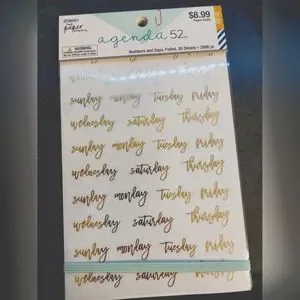 2038001
the
paper
studio
$8.99
agenda 52
WARNING:
Numbers and Days, Foiled, 30 Sheets • 2808 pc
sunday monday tuesday friday
wednesday saturday thursday
sunday monday tuesday friday
wednesday saturday thursday
sunday monday tuesday friday
wednesday saturday thursday
sunday monday tuesday friday
wednesday saturday thursday